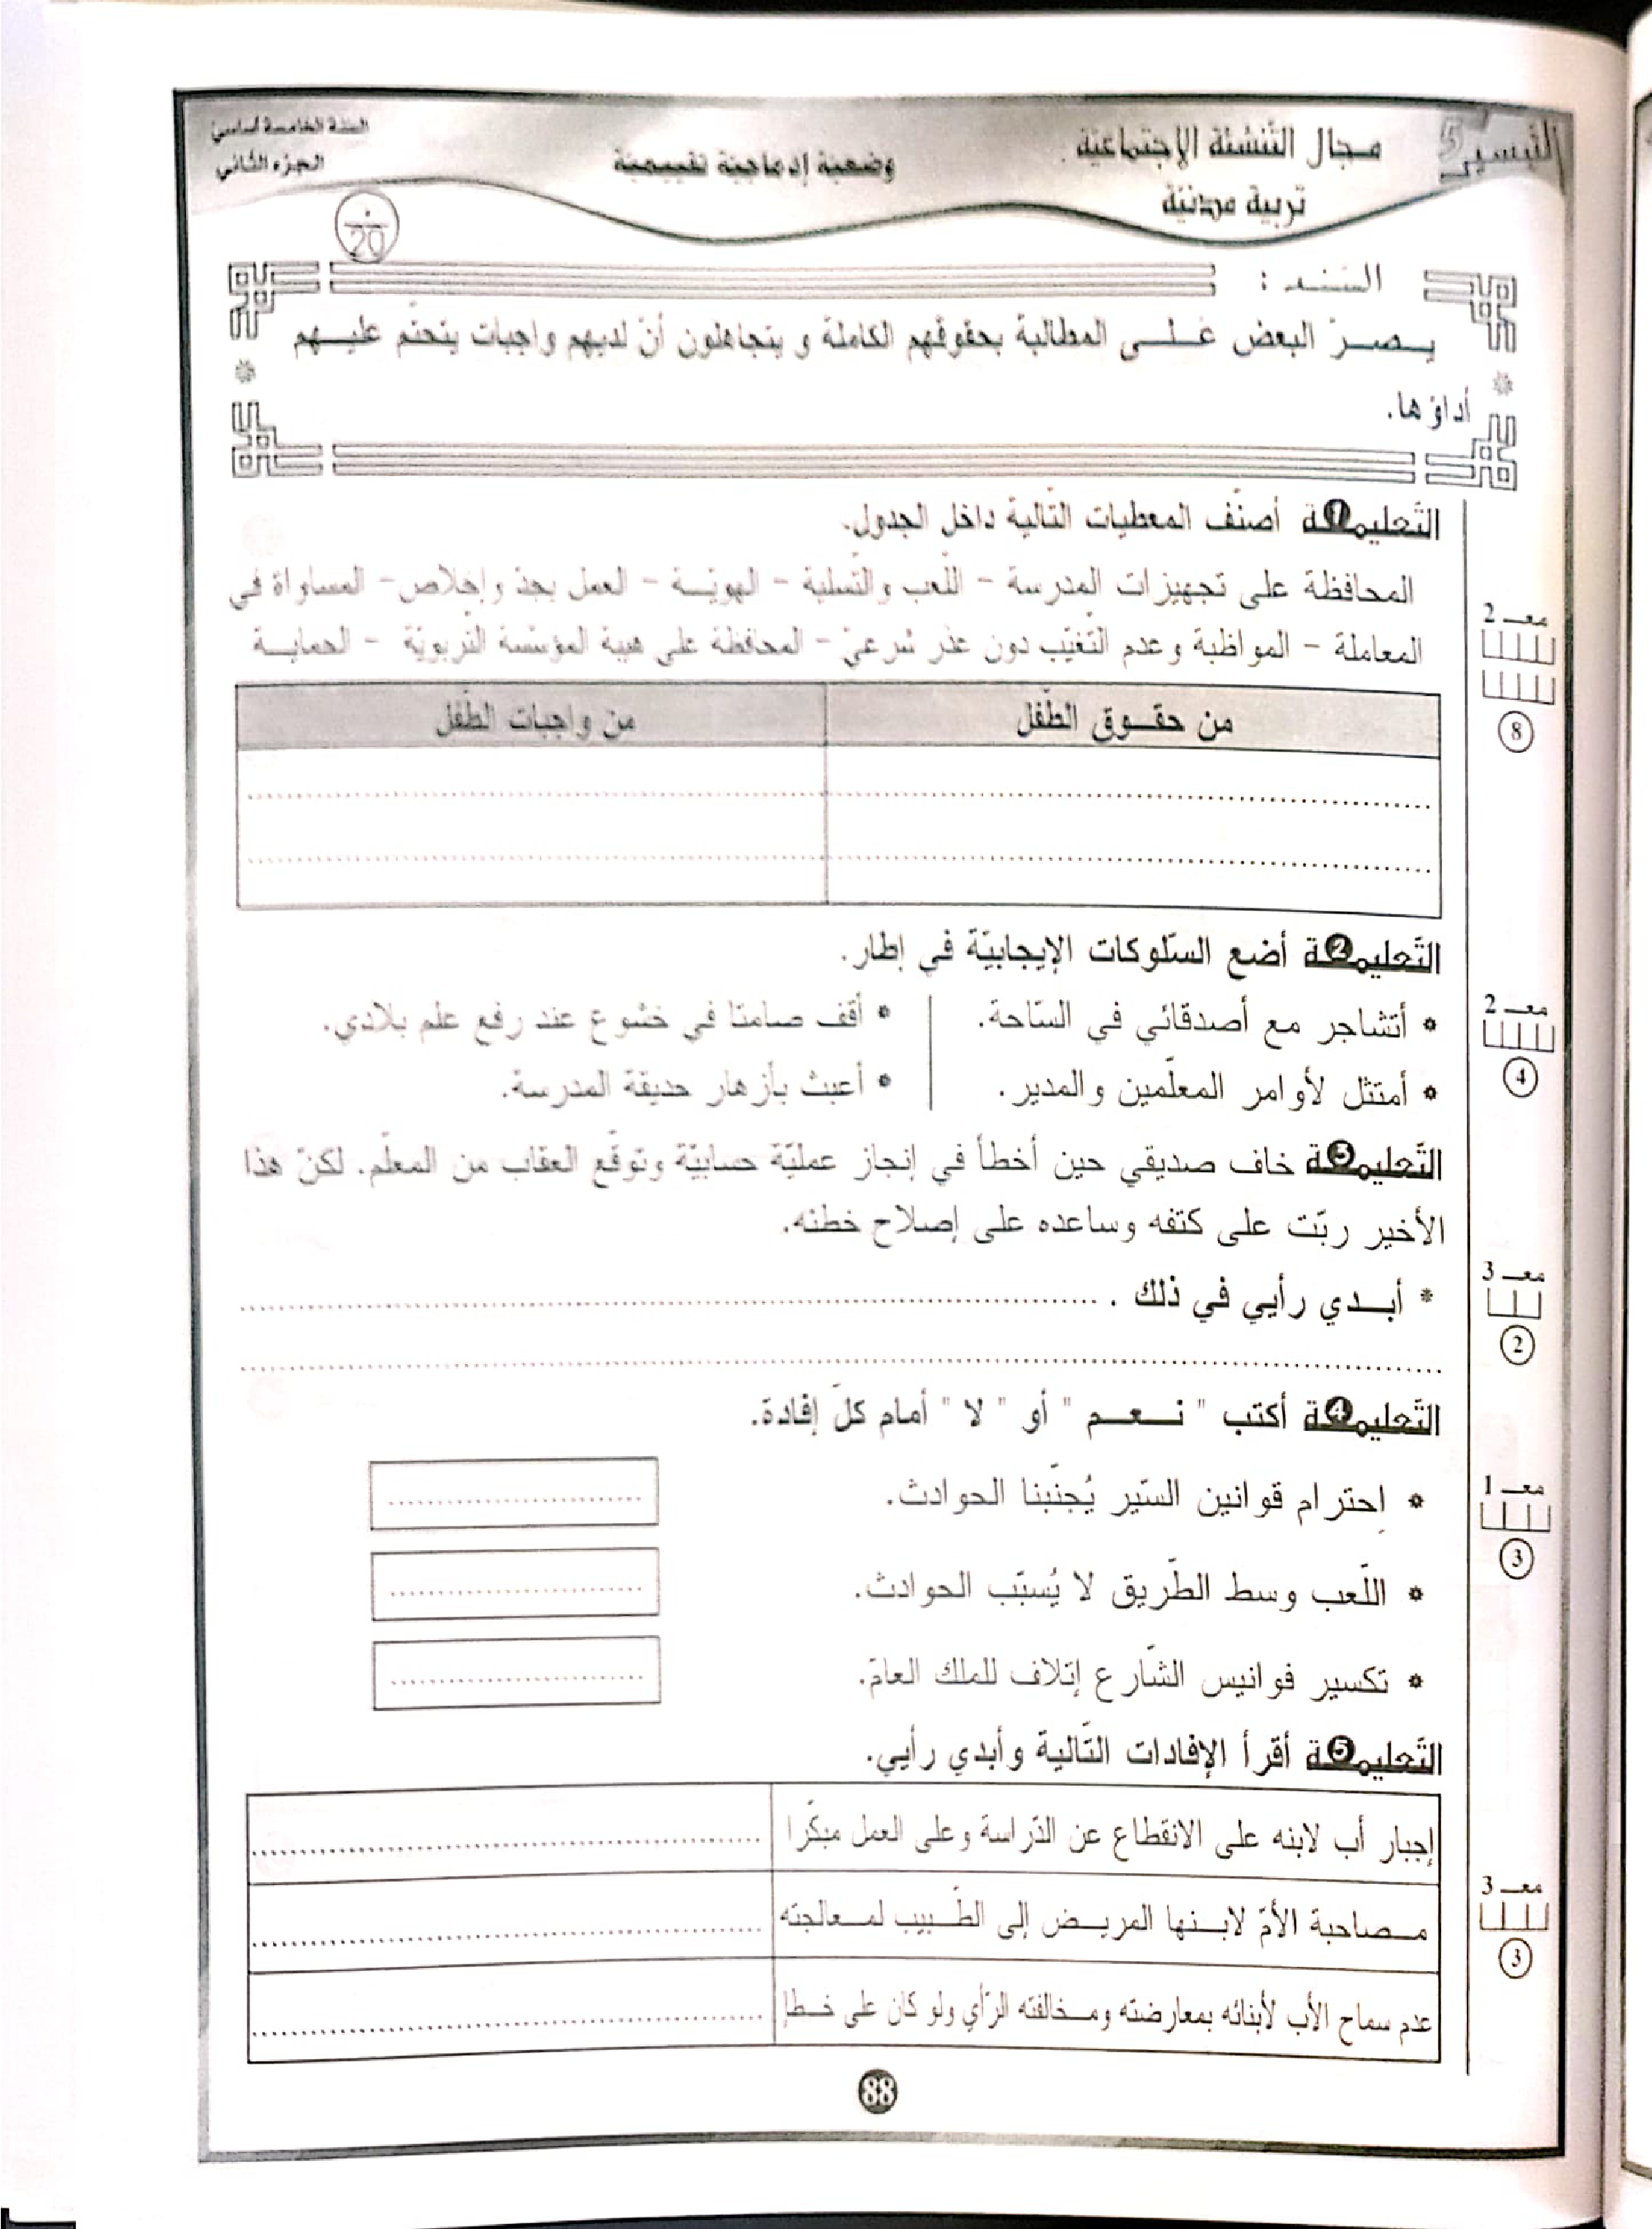 التيسير 5
مجال التنشئة الإجتماعية
تربية مدنية
وضعية إدماجية تقييمية
السنة الخامسة أساسي
الجزء الثاني
20
السّند :
يصرّ البعض على المطالبة بحقوقهم الكاملة و يتجاهلون أنّ لديهم واجبات يتحتّم عليهم
أداؤها.
التّعليمة 1 أصنّف المعطيات التّالية داخل الجدول.
المحافظة على تجهيزات المدرسة - اللّعب والتّسلية - الهويّة - العمل بجدّ وإخلاص - المساواة في
المعاملة - المواظبة وعدم التّغيّب دون عذر شرعيّ - المحافظة على هيبة المؤسّسة التّربويّة - الحماية
معـ 2
8
من حقوق الطّفل
من واجبات الطّفل
التّعليمة 2 أضع السّلوكات الإيجابيّة في إطار.
* أتشاجر مع أصدقائي في السّاحة.
* أقف صامتا في خشوع عند رفع علم بلادي.
* أمتثل لأوامر المعلّمين والمدير.
* أعبث بأزهار حديقة المدرسة.
معـ 2
4
التّعليمة 3 خاف صديقي حين أخطأ في إنجاز عمليّة حسابيّة وتوقّع العقاب من المعلّم. لكنّ هذا
الأخير ربّت على كتفه وساعده على إصلاح خطئه.
* أبدي رأيي في ذلك .
معـ 3
2
التّعليمة 4 أكتب " نعم " أو " لا " أمام كلّ إفادة.
* اِحترام قوانين السّير يُجنّبنا الحوادث.
* اللّعب وسط الطّريق لا يُسبّب الحوادث.
* تكسير فوانيس الشّارع إتلاف للملك العامّ.
معـ 1
3
التّعليمة 5 أقرأ الإفادات التّالية وأبدي رأيي.
إجبار أب لابنه على الانقطاع عن الدّراسة وعلى العمل مبكّرا
مصاحبة الأمّ لابنها المريض إلى الطّبيب لمعالجته
عدم سماح الأب لأبنائه بمعارضته ومخالفته الرّأي ولو كان على خطإ
معـ 3
3
88